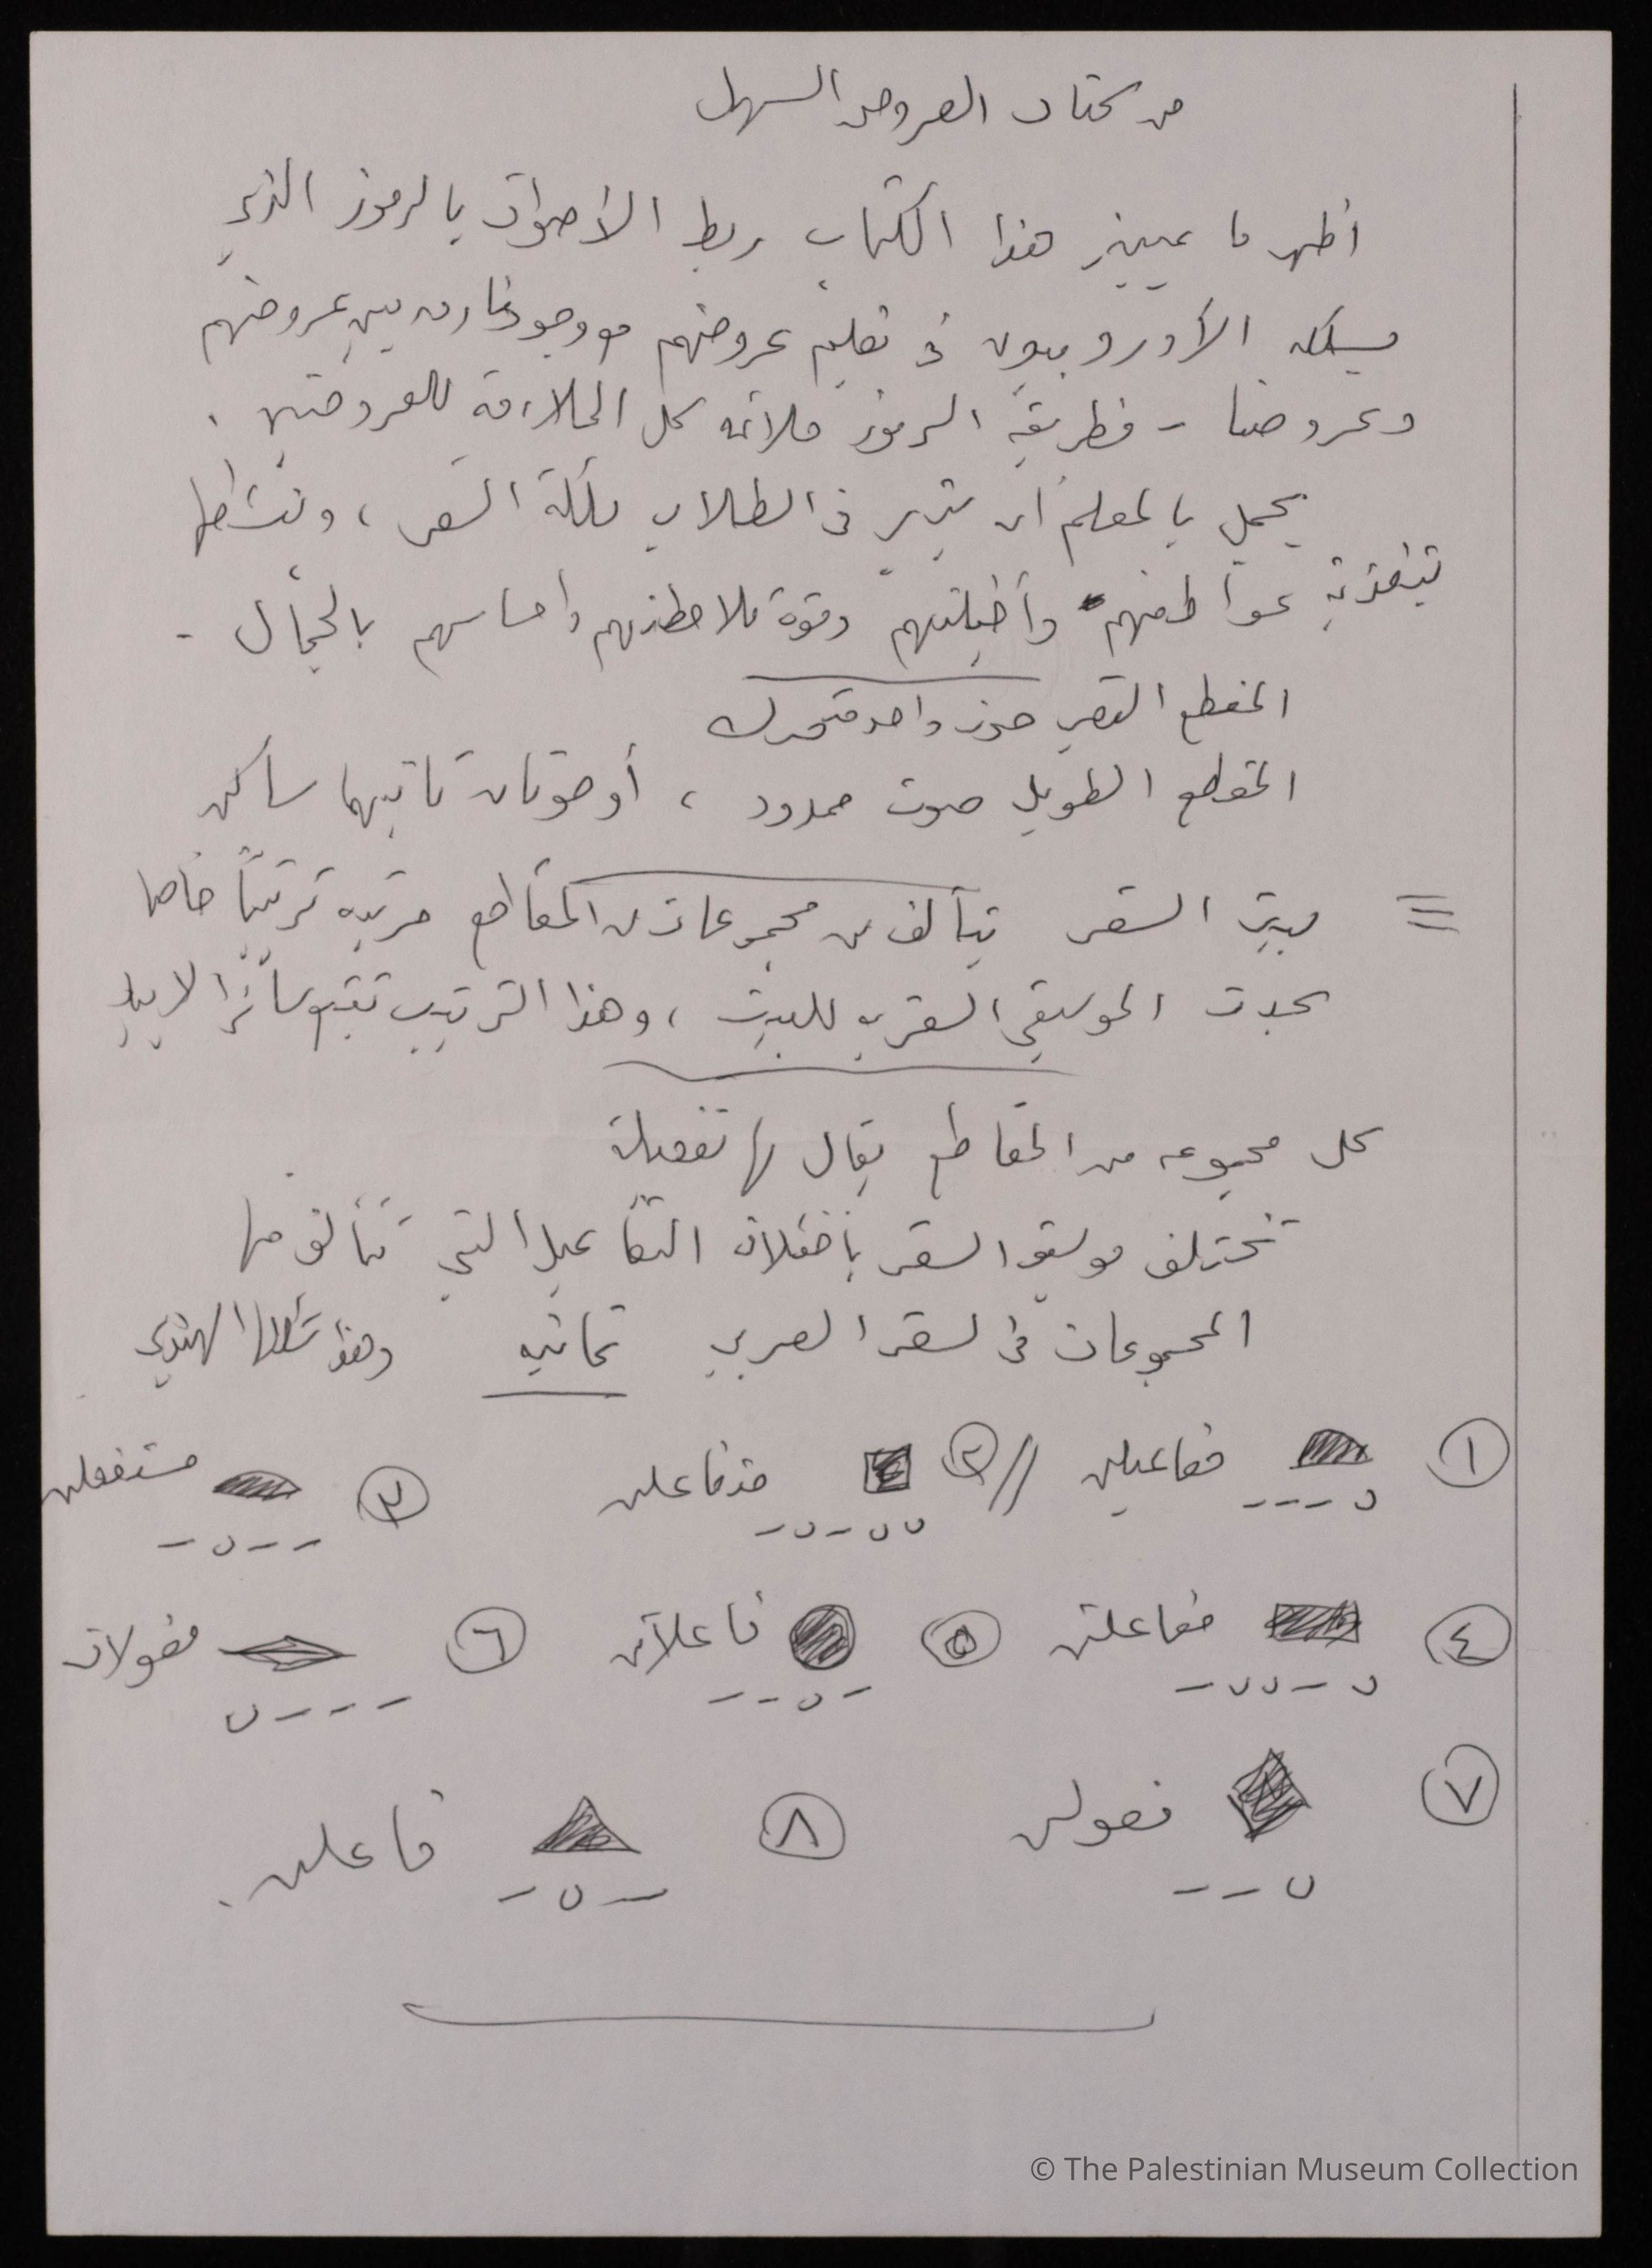 من كتاب العروض السهل
أظهر ما يميز هذا الكتاب ربط الأصوات بالرموز الذي
يسلكه الأوروبيون في تعليم عروضهم مع وجود فارق بين عروضهم
وعروضنا - فطريقة الرموز ملائمة كل الملاءمة للعروضين .
يجمل بالمعلم أن يثير في الطلاب ملكة الشعر ، وينشطها
بتغذية عواطفهم وأخيلتهم وقوة ملاحظتهم وإحساسهم بالجمال -
المقطع القصير صوت واحد متحرك
المقطع الطويل صوت ممدود ، أو صوتان ثانيهما ساكن
= بيت الشعر يتألف من مجموعات من المقاطع مرتبه ترتيباً خاصا
يحدث الموسيقى الشعريه للبيت ، وهذا الترتيب تتبع سائر الابيات
كل مجموعه من المقاطع يقال لها تفعيلة
تختلف موسيقى الشعر بإختلاف التفاعيل التي تتألف منها
المجموعات في الشعر العربي ثمانيه وهذا شكلها الهندي
١ مفاعيلن ں - - - // ٢ متفاعلن ں ں - ں - ٣ مستفعلن - - ں -
٤ مفاعلتن ں - ں ں - ٥ فاعلاتن - ں - - ٦ مفعولات - - - ں
٧ فعولن ں - - ٨ فاعلن - ں - .
© The Palestinian Museum Collection